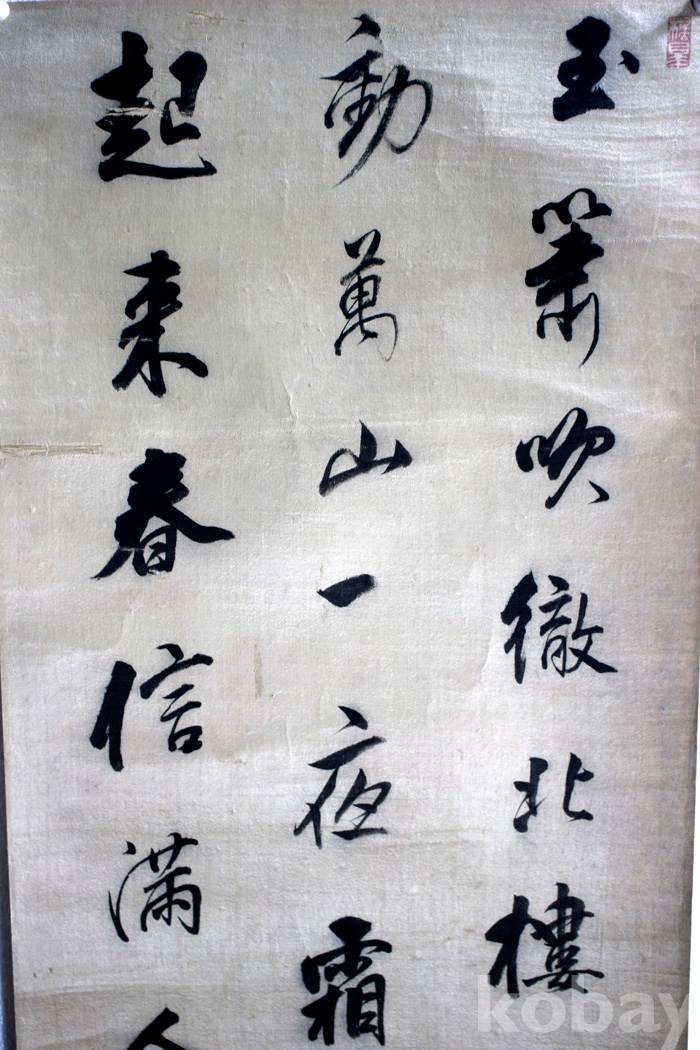 玉簫吹徹北樓
動萬山一夜霜
起来春信滿人
kobay